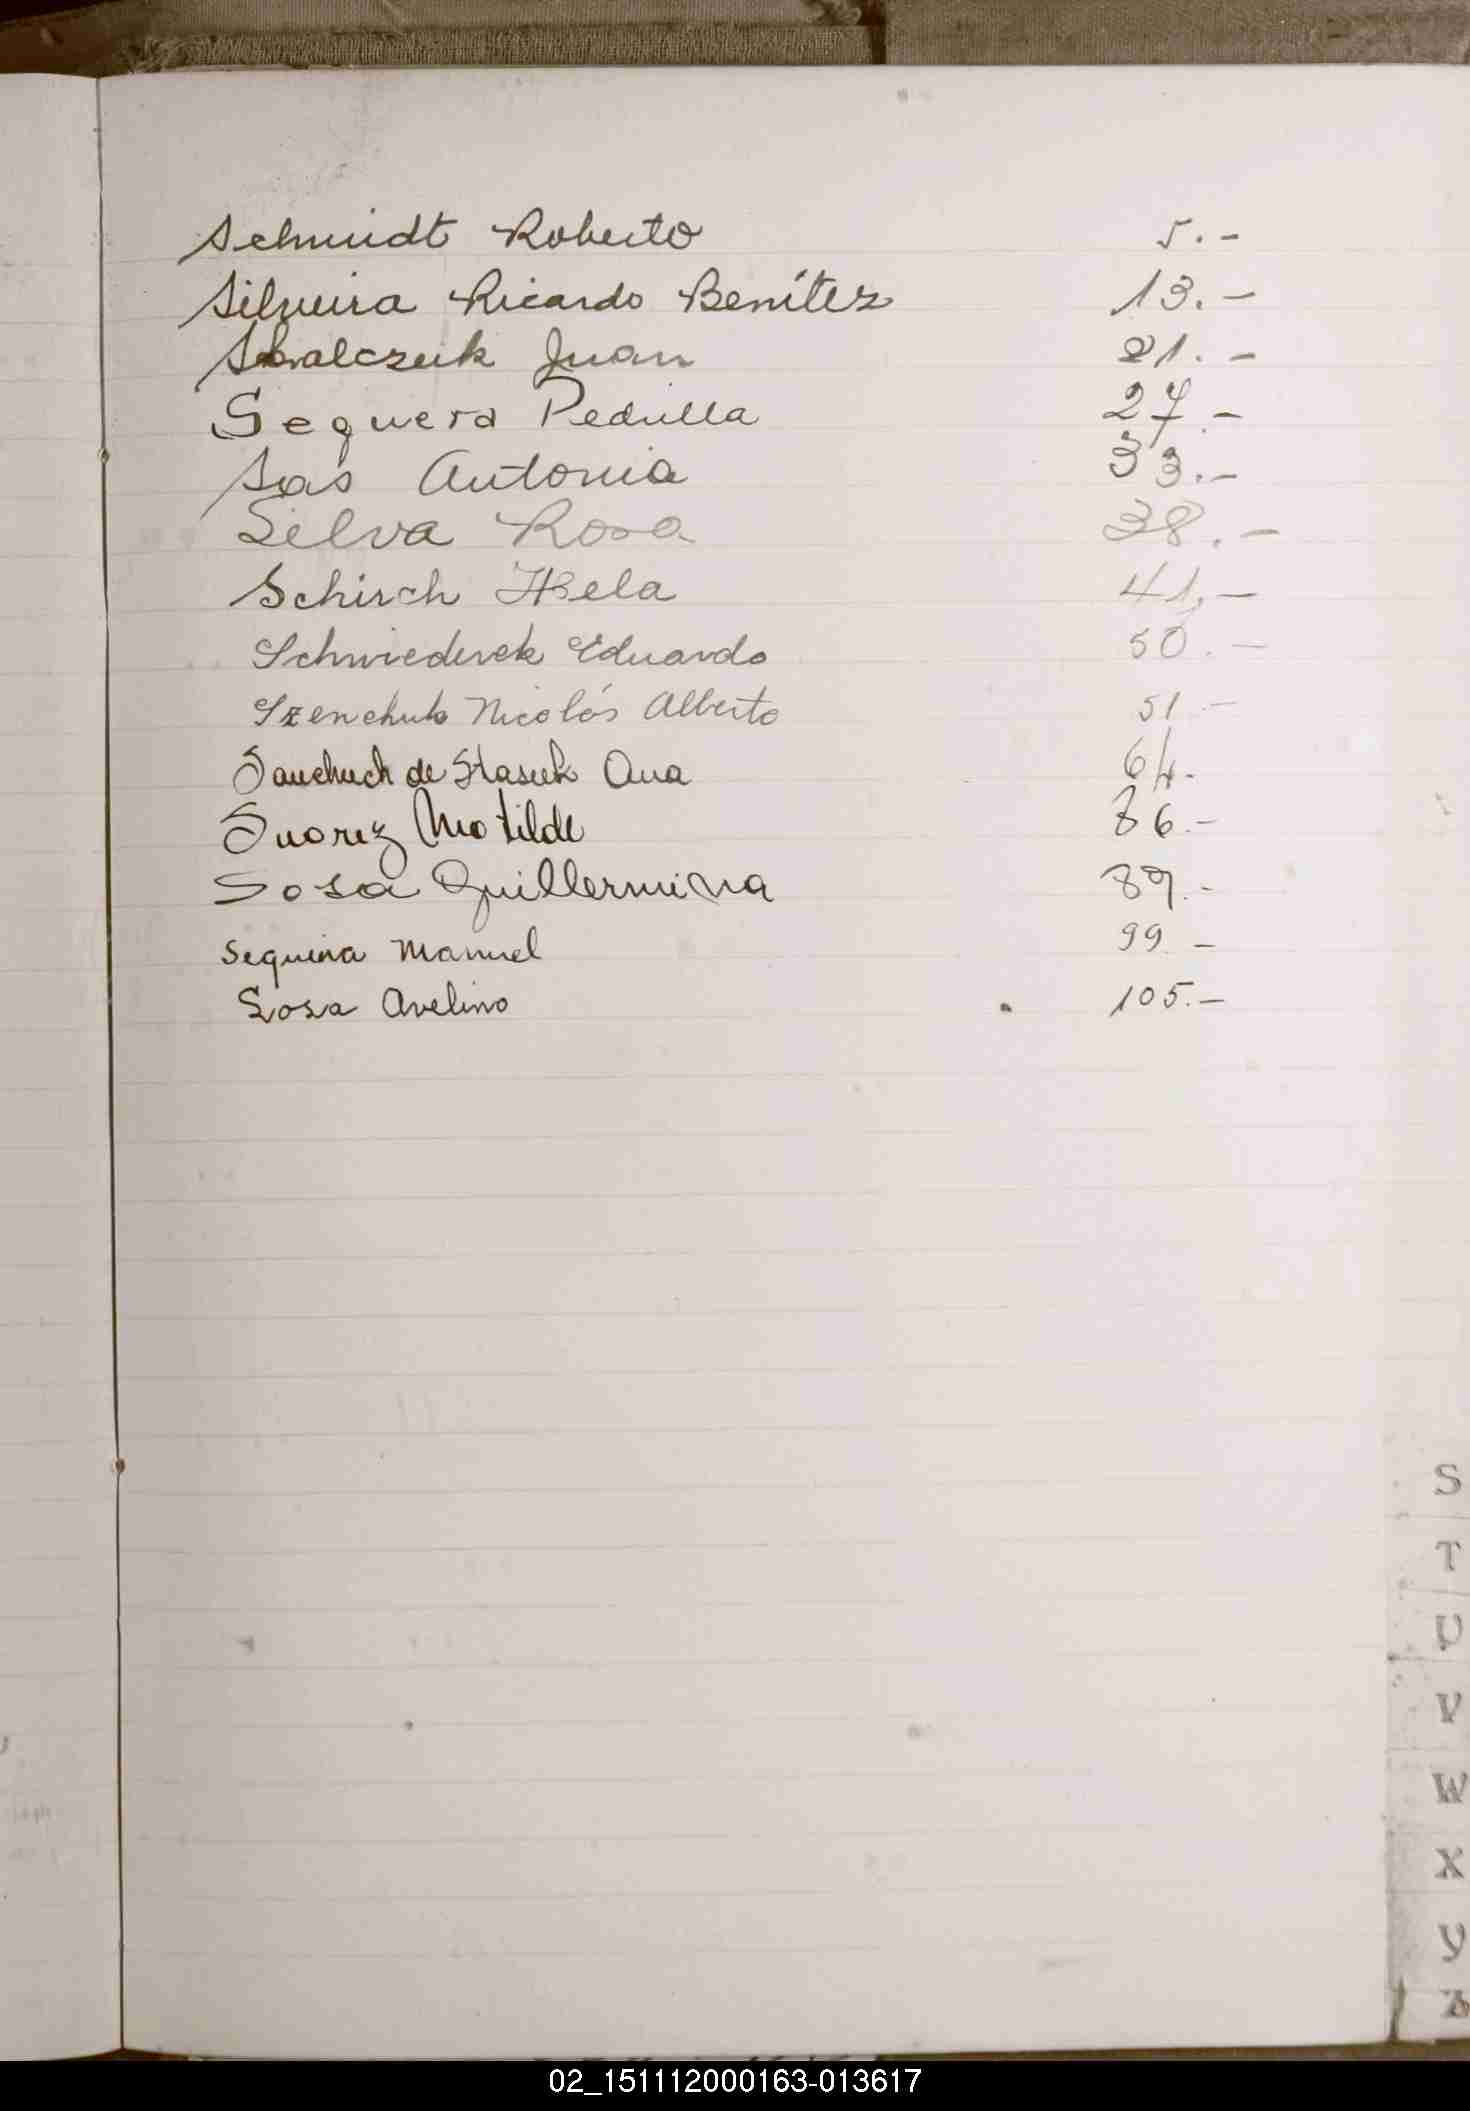 Schmidt Roberto 5.-
Silveira Ricardo Benítez 13.-
Juan 21.-
Sequera Pedulla 27.-
Sas Antonia 33.-
Silva Rosa 38.-
Schirch 41,-
Schwiederek Eduardo 50.-
Szenchuk Nicolás Alberto 51.-
Sauchuch de Stasuk Ana 64.-
Suarez Matilde 86.-
Sosa Guillermina 89.-
Sequeira Manuel 99 -
Sosa Avelino 105.-
S
T
U
V
W
X
Y
Z
02_151112000163-013617